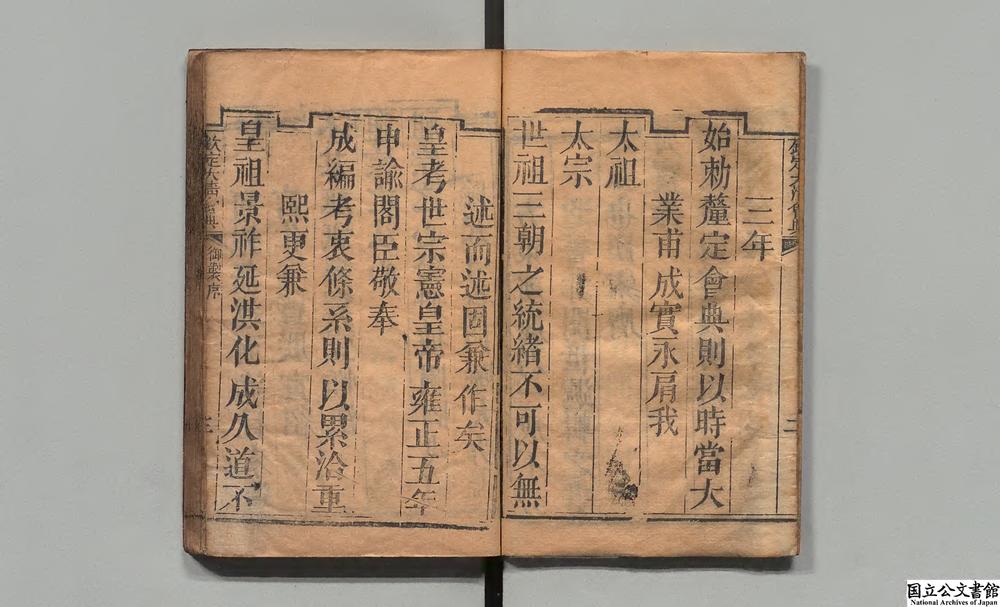 欽定大清會典
二
三年
始勅釐定會典則以時當大
業甫成實永肩我
太祖
太宗
世祖三朝之統緒不可以無
述而述固兼作矣
皇考世宗憲皇帝雍正五年
申諭閣臣敬奉
成編考衷條系則以累洽重
熙更兼
皇祖景祚延洪化成久道不
欽定大清會典
御製序
三
国立公文書館
National Archives of Japan